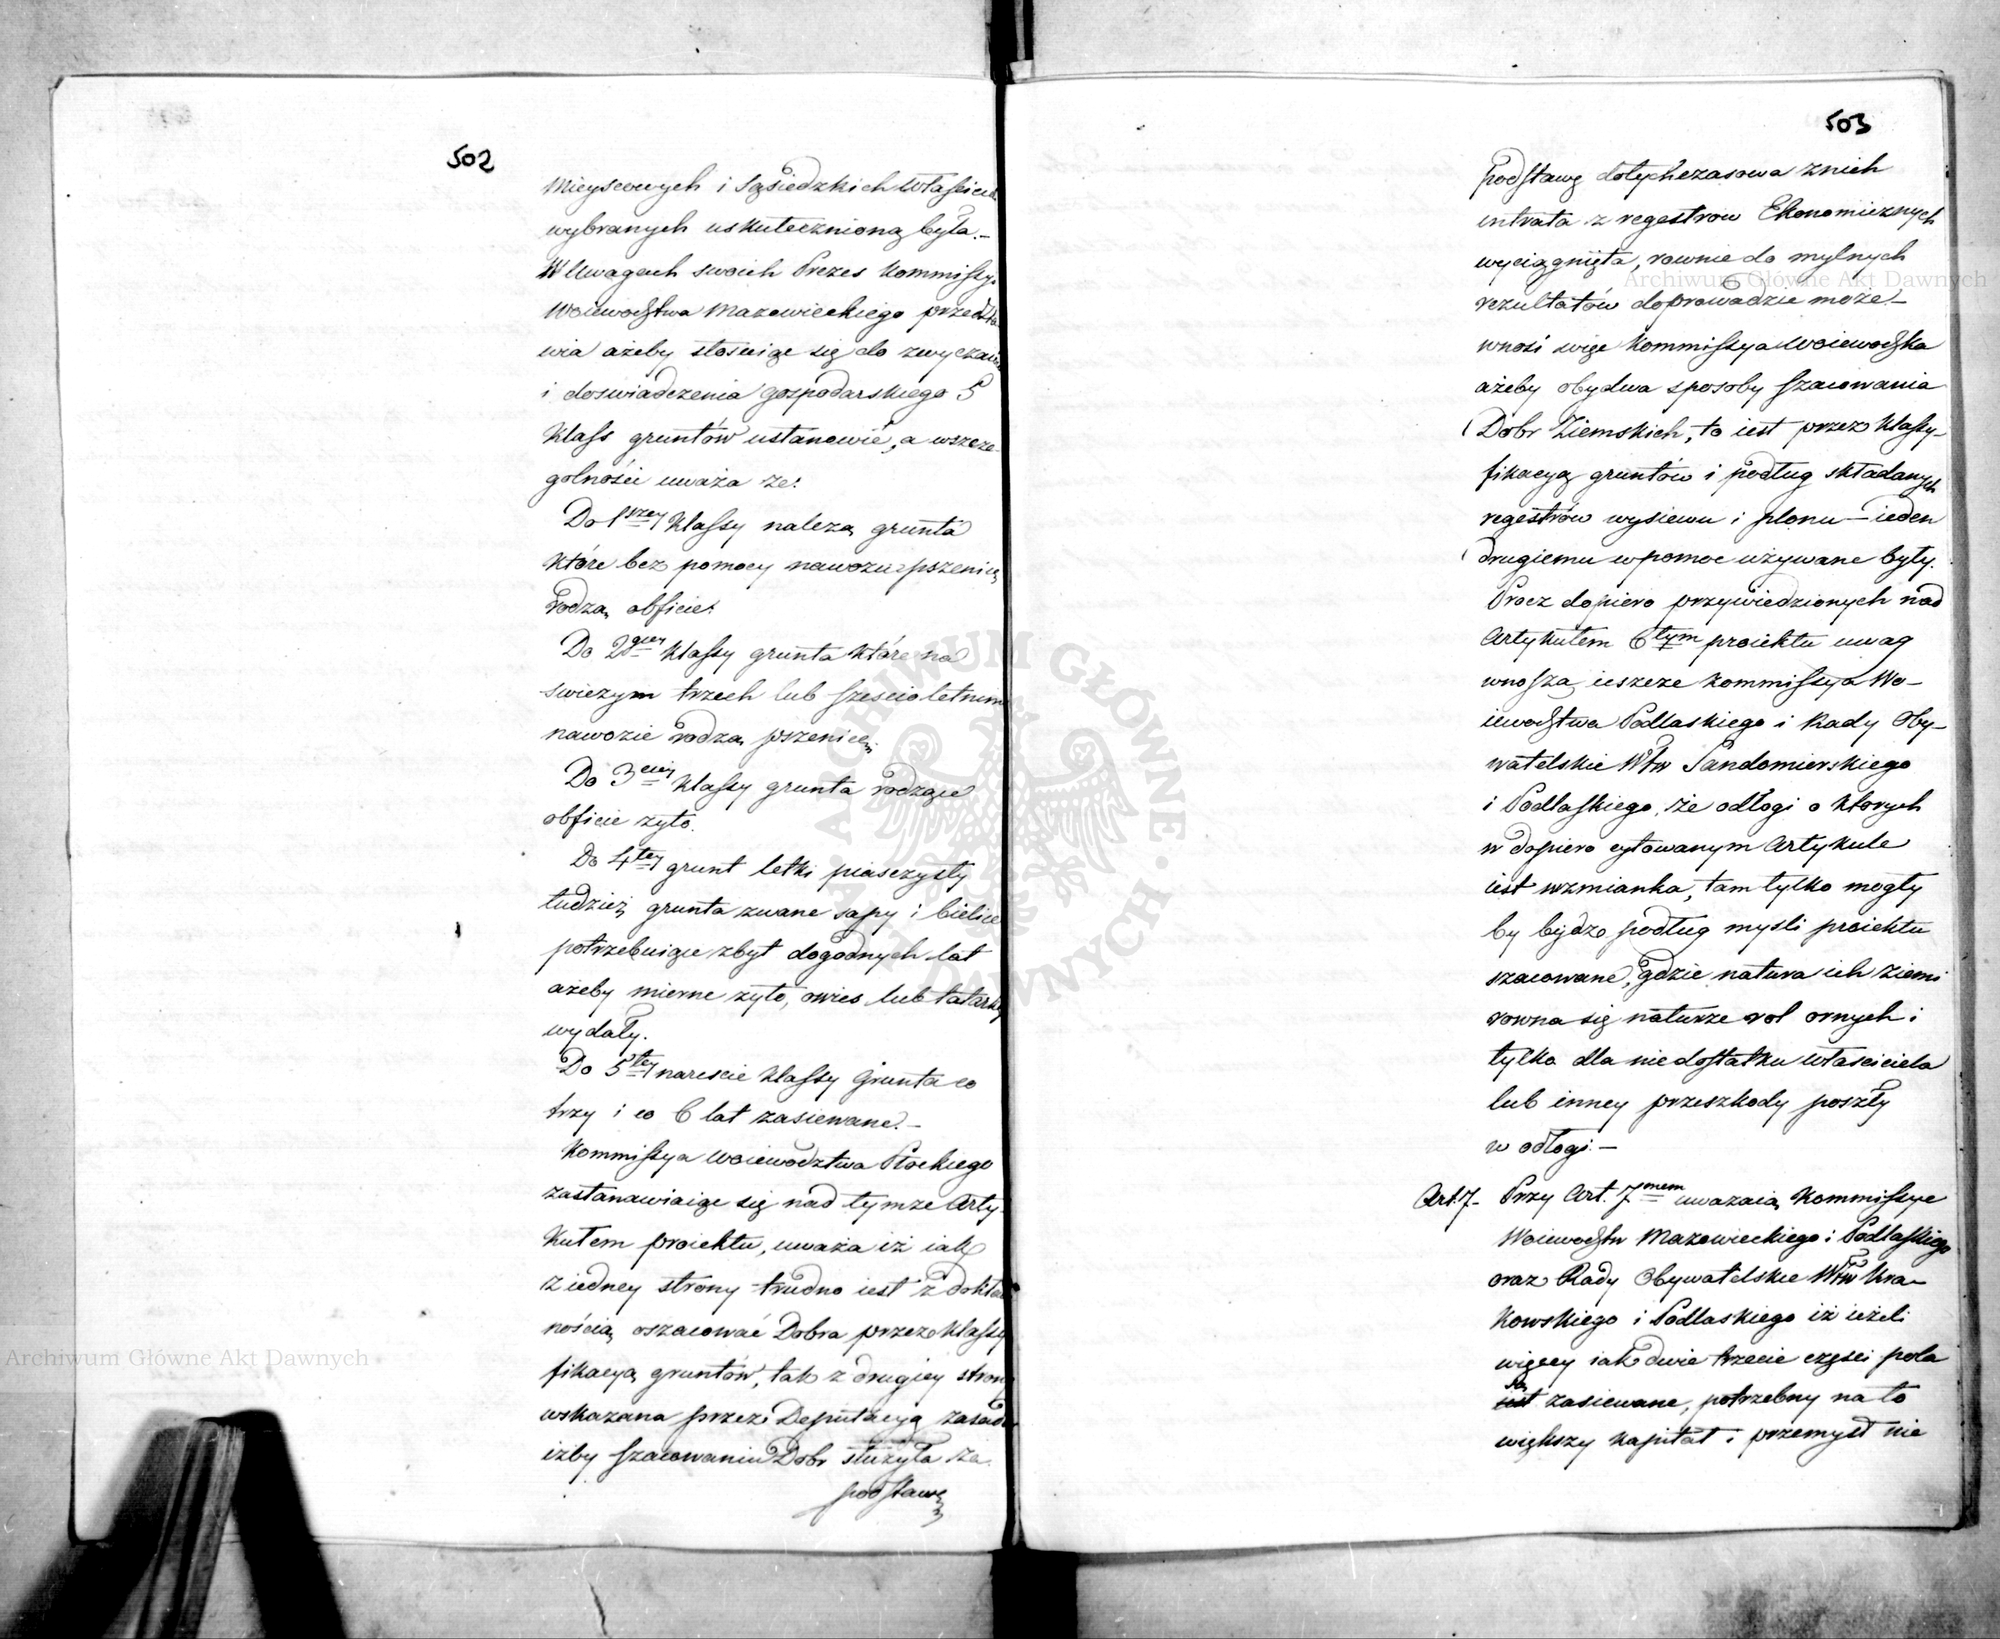 502
Mieyscowych i Sąsiedzkich Właścicie
wybranych uskutecznioną była.—
W Uwagach swoich Prezes Kommissyi
Woiewodztwa Mazowieckiego przedsta
wia ażeby stosuiąc się do zwyczaiu
i doswiadczenia gospodarskiego 5
Klass gruntów ustanowić, a wszcze-
golności uważa że:
Do 1szey Klassy należą grunta
które bez pomocy nawozu pszenicę
rodzą obficie.
Do 2giey Klassy grunta które na
swieżym trzech lub sześcioletnim
nawozie rodzą pszenicę.
Do 3ciey Klassy grunta rodzące
obficie żyto.
Do 4tey grunt letki piasczysty
tudzież grunta zwane sapy i bielice
potrzebuiące zbyt dogodnych lat
ażeby mierne żyto, owies lub tatarkę
wydały.
Do 5tey nareście Klassy Grunta co
trzy i co 6 lat zasiewane.—
Kommissya Woiewodztwa Płockiego
zastanawiaiąc się nad tymże Arty-
kułem proiektu, uważa iż iak
z iedney strony trudno iest z dokła
nością oszacować Dobra przez Klassy
fikacyą gruntów, tak z drugiey strony
wskazana przez Deputacyą zasada
iżby szacowaniu Dobr służyła za
podstawę
503
podstawę dotychczasowa z nich
intrata z regestrow Ekonomicznych
wyciągnięta, rownie do mylnych
rezultatów doprowadzić może.—
wnosi więc Kommissya Woiewodzka
ażeby obydwa sposoby szacowania
Dobr Ziemskich, to iest przez Klassy-
fikacyą gruntów i podług składanych
regestrów wysiewu i plonu — ieden
drugiemu w pomoc używane były.
Procz dopiero przywiedzionych nad
Artykułem 6tym proiektu uwag
wnoszą ieszcze Kommissya Wo-
iewodztwa Podlaskiego i Rady Oby-
watelskie Wtw Sandomierskiego
i Podlaskiego, że odłogi o ktorych
w dopiero cytowanym Artykule
iest wzmianka, tam tylko mogły
by bydź podług myśli proiektu
szacowane, gdzie natura ich ziemi
rowna się naturze rol ornych i
tylko dla niedostatku właściciela
lub inney przeszkody poszły
w odłogi.—
Art. 7. Przy Art. 7mem uważaią Kommissye
Woiewodztw Mazowieckiego i Podlaskiego
oraz Rady Obywatelskie Wtw Kra-
kowskiego i Podlaskiego iż ieżeli
więcey iak dwie trzecie części pola
są
iest zasiewane, potrzebny na to
większy kapitał i przemysł nie
Archiwum Główne Akt Dawnych
Archiwum Główne Akt Dawnych
ARCHIWUM GŁÓWNE AKT DAWNYCH